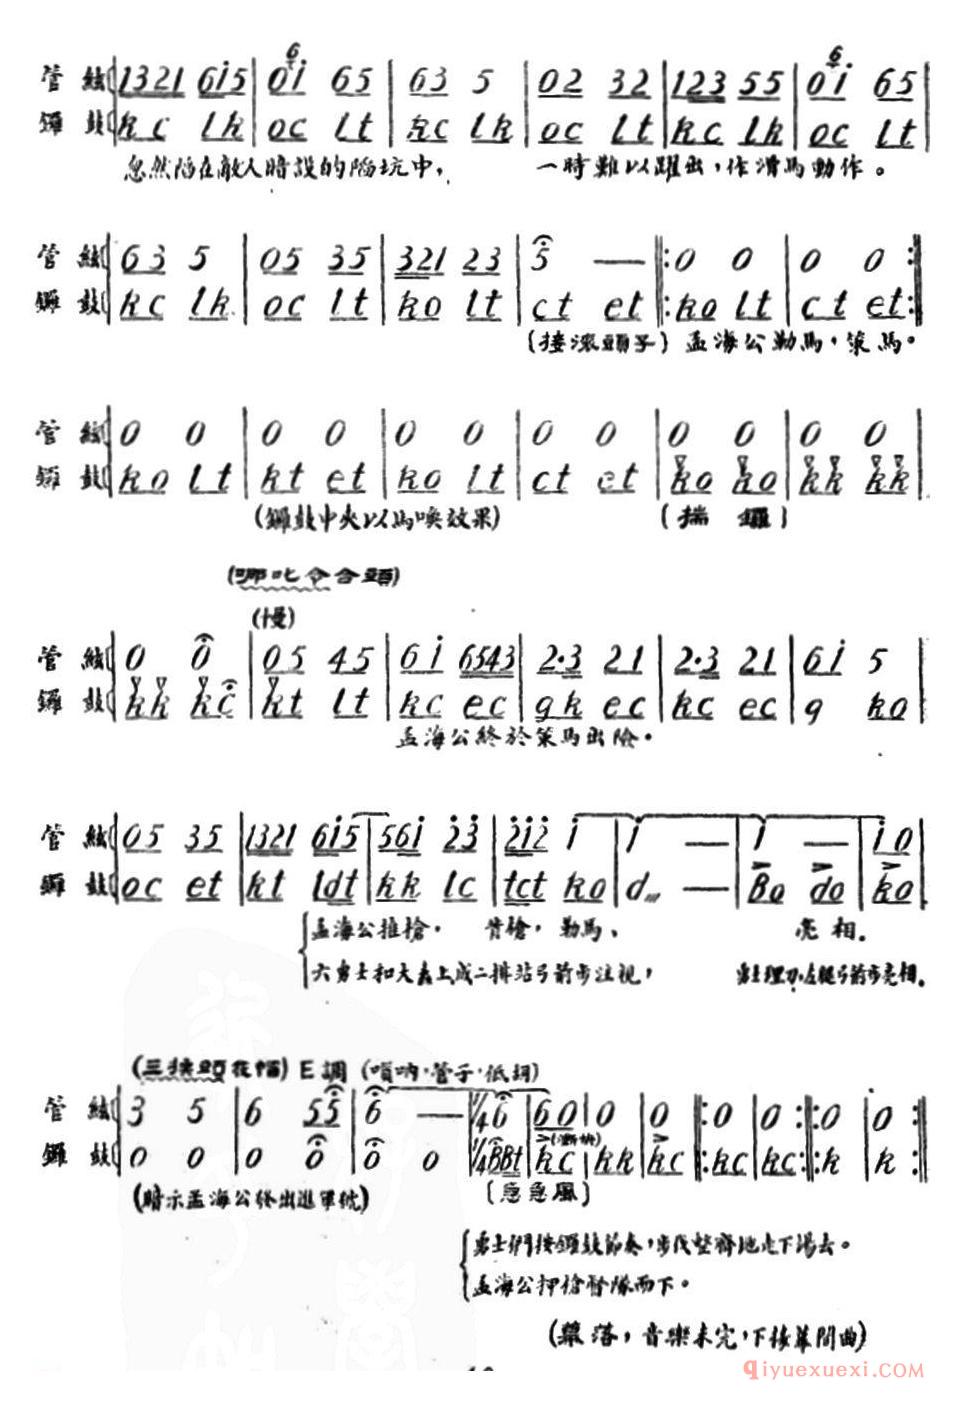 管絃 1321 6i5 | 0i 65 | 63 5 | 02 32 | 123 55 | 0i 65 |
鑼鼓 kc lk | oc lt | kc lk | oc lt | kc lk | oc lt |
忽然陷在敵人暗設的陷坑中， 一時難以躍出，作滑馬動作。
管絃 63 5 | 05 35 | 321 23 | 5 — ‖: 0 0 | 0 0 :‖
鑼鼓 kc lk | oc lt | ko lt | ct et ‖: ko lt | ct et :‖
(接滚頭子) 孟海公勒馬，策馬。
管絃 0 0 | 0 0 | 0 0 | 0 0 | 0 0 | 0 0 |
鑼鼓 ko lt | kt et | ko lt | ct et | ko ko | kk kk |
(鑼鼓中夾以馬喚效果) (揣鑼)
(哪吒令合頭)
(慢)
管絃 0 0 | 05 45 | 6i 6543 | 2·3 21 | 2·3 21 | 6i 5
鑼鼓 kk kc | kt lt | kc ec | gk ec | kc ec | g ko
孟海公終於策馬出險。
管絃 05 35 | 1321 6i5 | 56i 23 | 2i2 i | i — | i — | i0
鑼鼓 oc et | kt ldt | kk lc | tct ko | d — | Bo do | ko
孟海公推槍， 背槍，勒馬、 亮相.
六勇士和大纛上成二排站弓前步注視， 勇士理刀·左腿弓前步亮相.
(三挾頭花幅) E調 (嗩吶·管子·低胡)
管絃 3 5 | 6 55 | 6 — | 1/4 6 | 60 | 0 | 0 ‖: 0 | 0 :‖: 0 | 0 :‖
鑼鼓 0 0 | 0 0 | 0 0 | 1/4 BBt | kc | kk | kc ‖: kc | kc :‖: k | k :‖
(暗示孟海公發出進軍號) (急急風)
勇士們按鑼鼓節奏，步伐整齊地走下場去。
孟海公押槍督隊而下。
(幕落，音樂未完，下接幕間曲)
qiyuexuexi.com